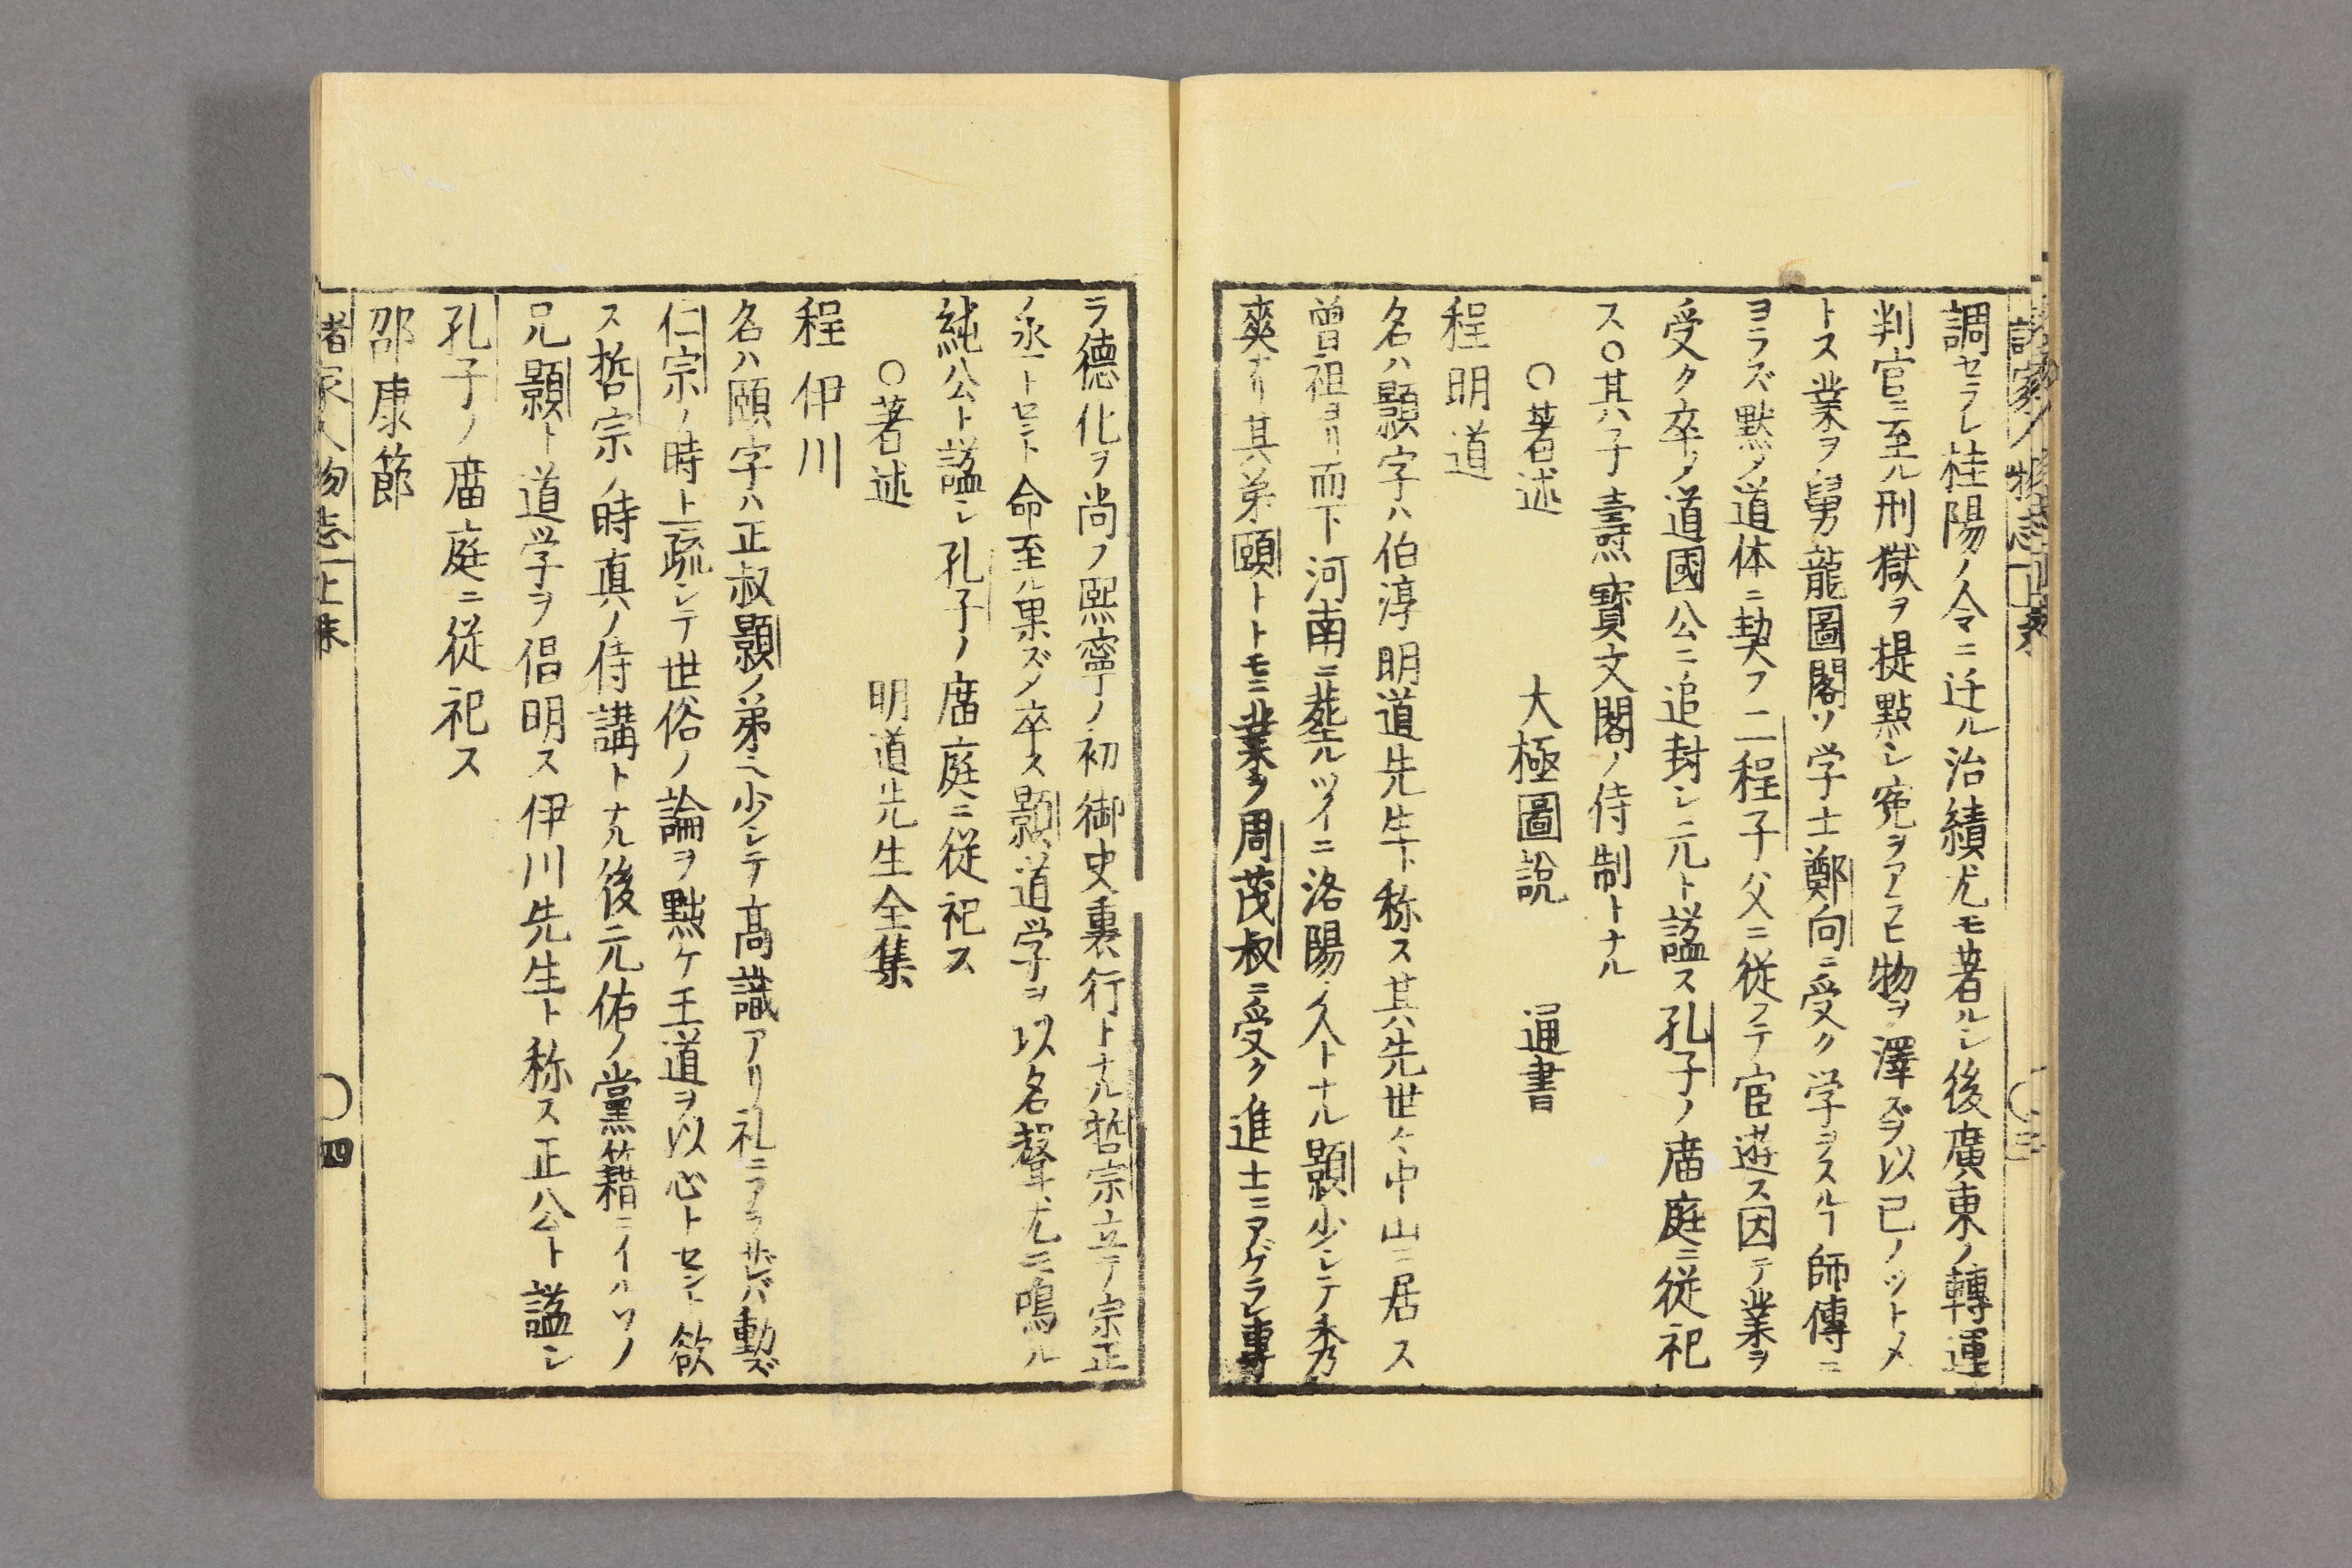 調セラレ桂陽ノ令ニ迁ル治績尤モ著ルシ後廣東ノ轉運
判官ニ至ル刑獄ヲ提點シ寃ヲアラヒ物ヲ澤スヲ以己ノツトメ
トス業ヲ舅龍圖閣ノ学士鄭向ニ受ク学ヲスルヿ師傳ニ
ヨラズ黙乄道体ニ契フ二程子父ニ従フテ宦遊ス因テ業ヲ
受ク卒乄道國公ニ追封シ元ト諡ス孔子ノ廟庭ニ従祀
ス〇其子壽燾寶文閣ノ侍制トナル
〇著述 大極圖說 通書
程明道
名ハ顥字ハ伯淳明道先生ト称ス其先世々中山ニ居ス
曾祖ヨリ而下河南ニ葬ルツイニ洛陽ノ人トナル顥少シテ秀
爽ナリ其弟頤トトモニ業ヲ周茂叔ニ受ク進士ニアゲラレ專
ラ德化ヲ尚ノ熙寧ノ初御史裏行トナル哲宗立テ宗正
ノ丞トセント命至ル果ズ乄卒ス顥道学ヲ以名聲尤モ鳴ル
純公ト諡シ孔子ノ廟庭ニ従祀ス
〇著述 明道先生全集
程伊川
名ハ頤字ハ正叔顥ノ弟ニ少シテ髙識アリ礼ニアラザレバ動ズ
仁宗ノ時上疏シテ世俗ノ論ヲ黜ケ王道ヲ以心トセント欲
ス哲宗ノ時真ノ侍講トナル後元佑ノ黨籍ニイルソノ
兄顥ト道学ヲ倡明ス伊川先生ト称ス正公ト諡シ
孔子ノ廟庭ニ従祀ス
邵康節
諸家人物志 上末 〇四